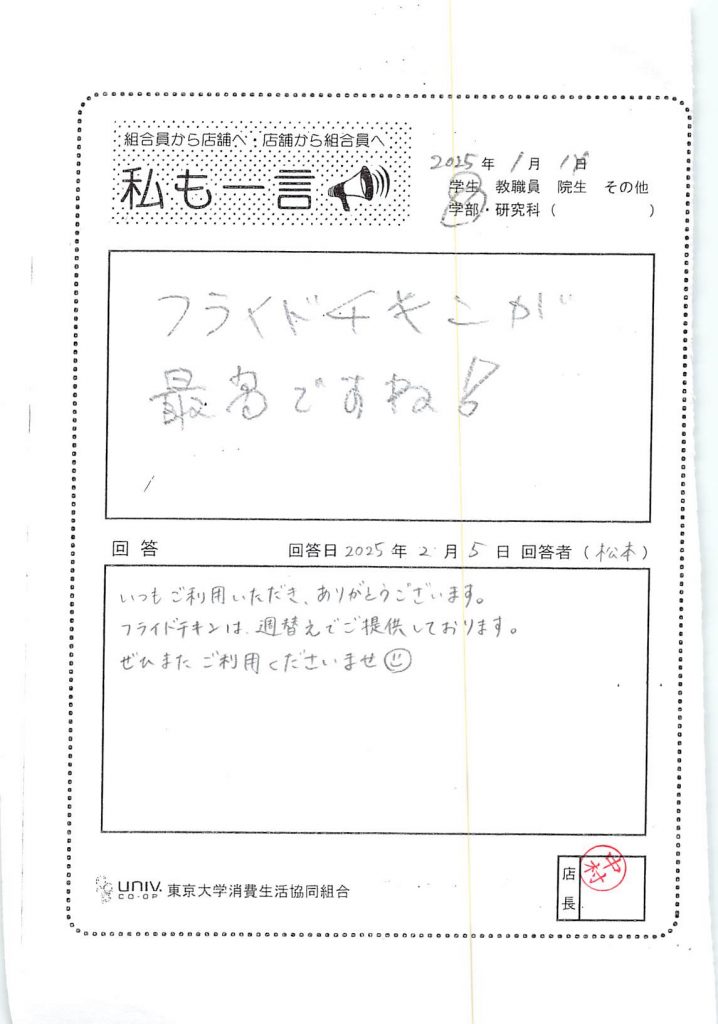 組合員から店舗へ・店舗から組合員へ
私も一言
2025年1月1日
学生 教職員 院生 その他
学部・研究科( )
フライドチキンが
最高ですね!
回答 回答日2025年2月5日 回答者(松本)
いつもご利用いただき、ありがとうございます。
フライドチキンは、週替えでご提供しております。
ぜひまたご利用くださいませ
UNIV. CO-OP 東京大学消費生活協同組合
店長 中村